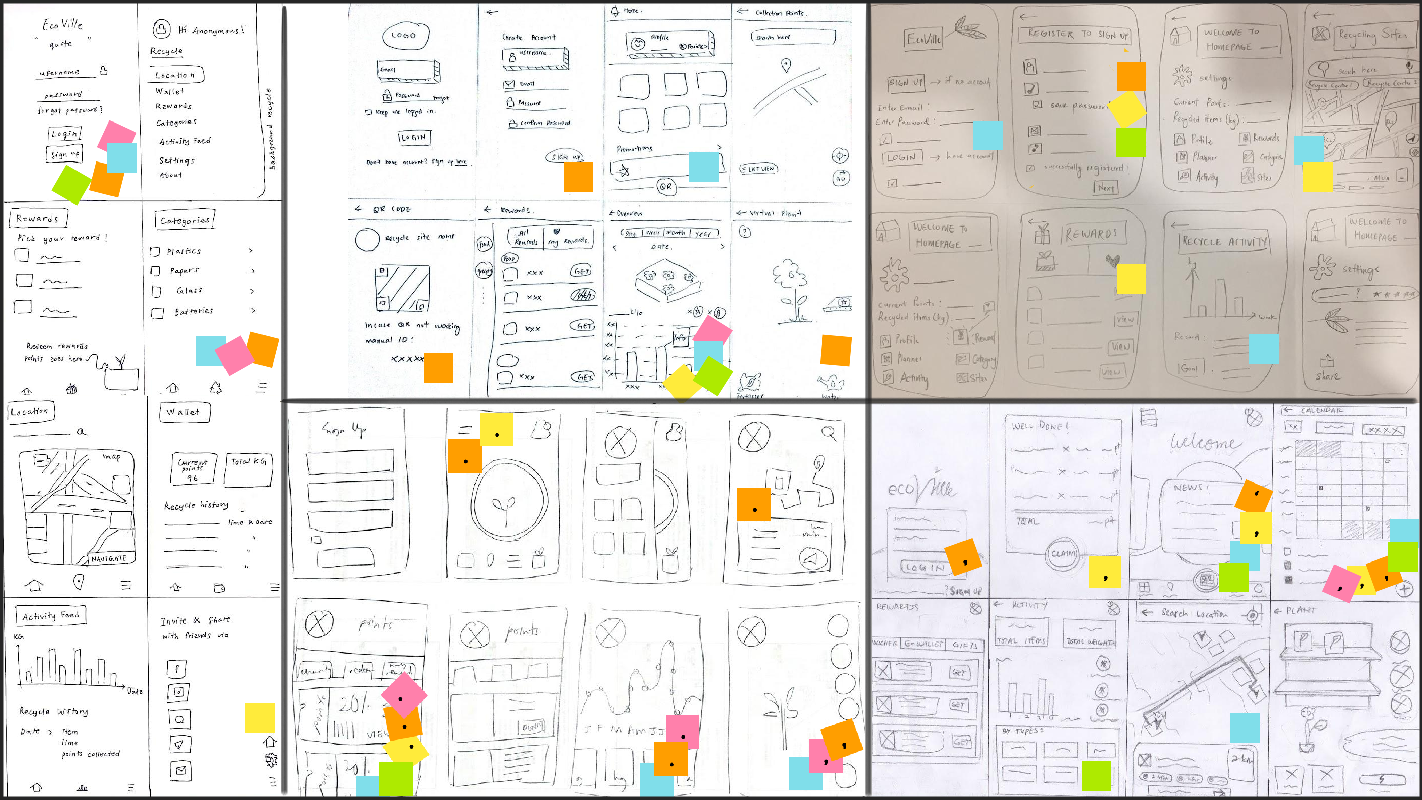 EcoVille
"quote"
username
password
forgot password?
Login
Sign up
Hi Anonymous!
Recycle
Location
Wallet
Rewards
Categories
Activity Feed
Settings
About
background recycle
Rewards
Pick your reward!
Redeem rewards
points goes here
Categories
Plastics >
Papers >
Glass >
Batteries >
Location
map
NAVIGATE
Wallet
Current
points
96
Total KG
Recycle history
time & date
Activity Feed
KG
Date
Recycle History
Date > item
time
points collected
Invite & Share
with friends via
LOGO
Email
Password
Forgot
Keep me logged in.
LOGIN
Don't have account? Sign up here
←
Create Account
username
Email
Password
Confirm Password
SIGN UP
Home.
Profile
Promotions >
QR
← Collection Points.
Search here
LIST VIEW
← QR CODE
Recycle site name
In case QR not working
manual ID:
XXXXX
← Rewards.
All
Rewards
My Rewards.
Food
xxx GET
xxx
xxx GET
xxx GET
← Overview
Day week month year
< DATE. >
xxx xxx
← Virtual Plant
?
Fertiliser
Water
EcoVille
SIGN UP → if no account
Enter Email:
Enter Password:
LOGIN → have account
←
REGISTER TO SIGN UP
save password
successfully registered!
Next
←
WELCOME TO
HOMEPAGE
settings
Current Points:
Recycled Items (kg):
Profile Rewards
Planner Category
Activity Sites
Recycling Sites
search here
Recycle Center 1
Recycle Center 2
WELCOME TO
HOMEPAGE
Current Points:
Recycled Items (kg):
Profile Reward
Planner Category
Activity Sites
REWARDS
VIEW
VIEW
VIEW
←
RECYCLE ACTIVITY
week
Record:
Goal:
←
WELCOME TO
HOMEPAGE
settings
share
Sign Up
points
20%
VIEW
20%
points
J F M A M J J
kg
ecoVille
LOGIN
? SIGN UP
WELL DONE!
x
x
x
TOTAL
CLAIM
Welcome
NEWS:
QR
← CALENDAR
xx
XXXX
REWARDS
VOUCHER E-WALLET
GET
GET
GET
← ACTIVITY
TOTAL ITEMS
TOTAL WEIGHT
BY TYPES:
← Search Location
← PLANT
P P